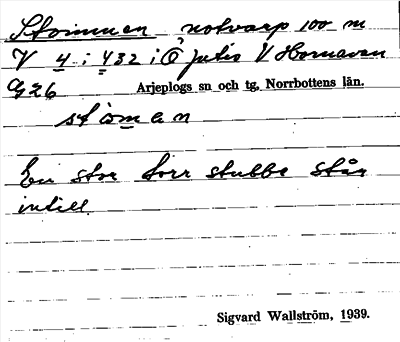 Stommen, notvarp 100 m
V 4 i 432 i Ö V Hornavan
G26 Arjeplogs sn och tg, Norrbottens län.
stòmen
En stor torr stubbe står
intill.
Sigvard Wallström, 1939.